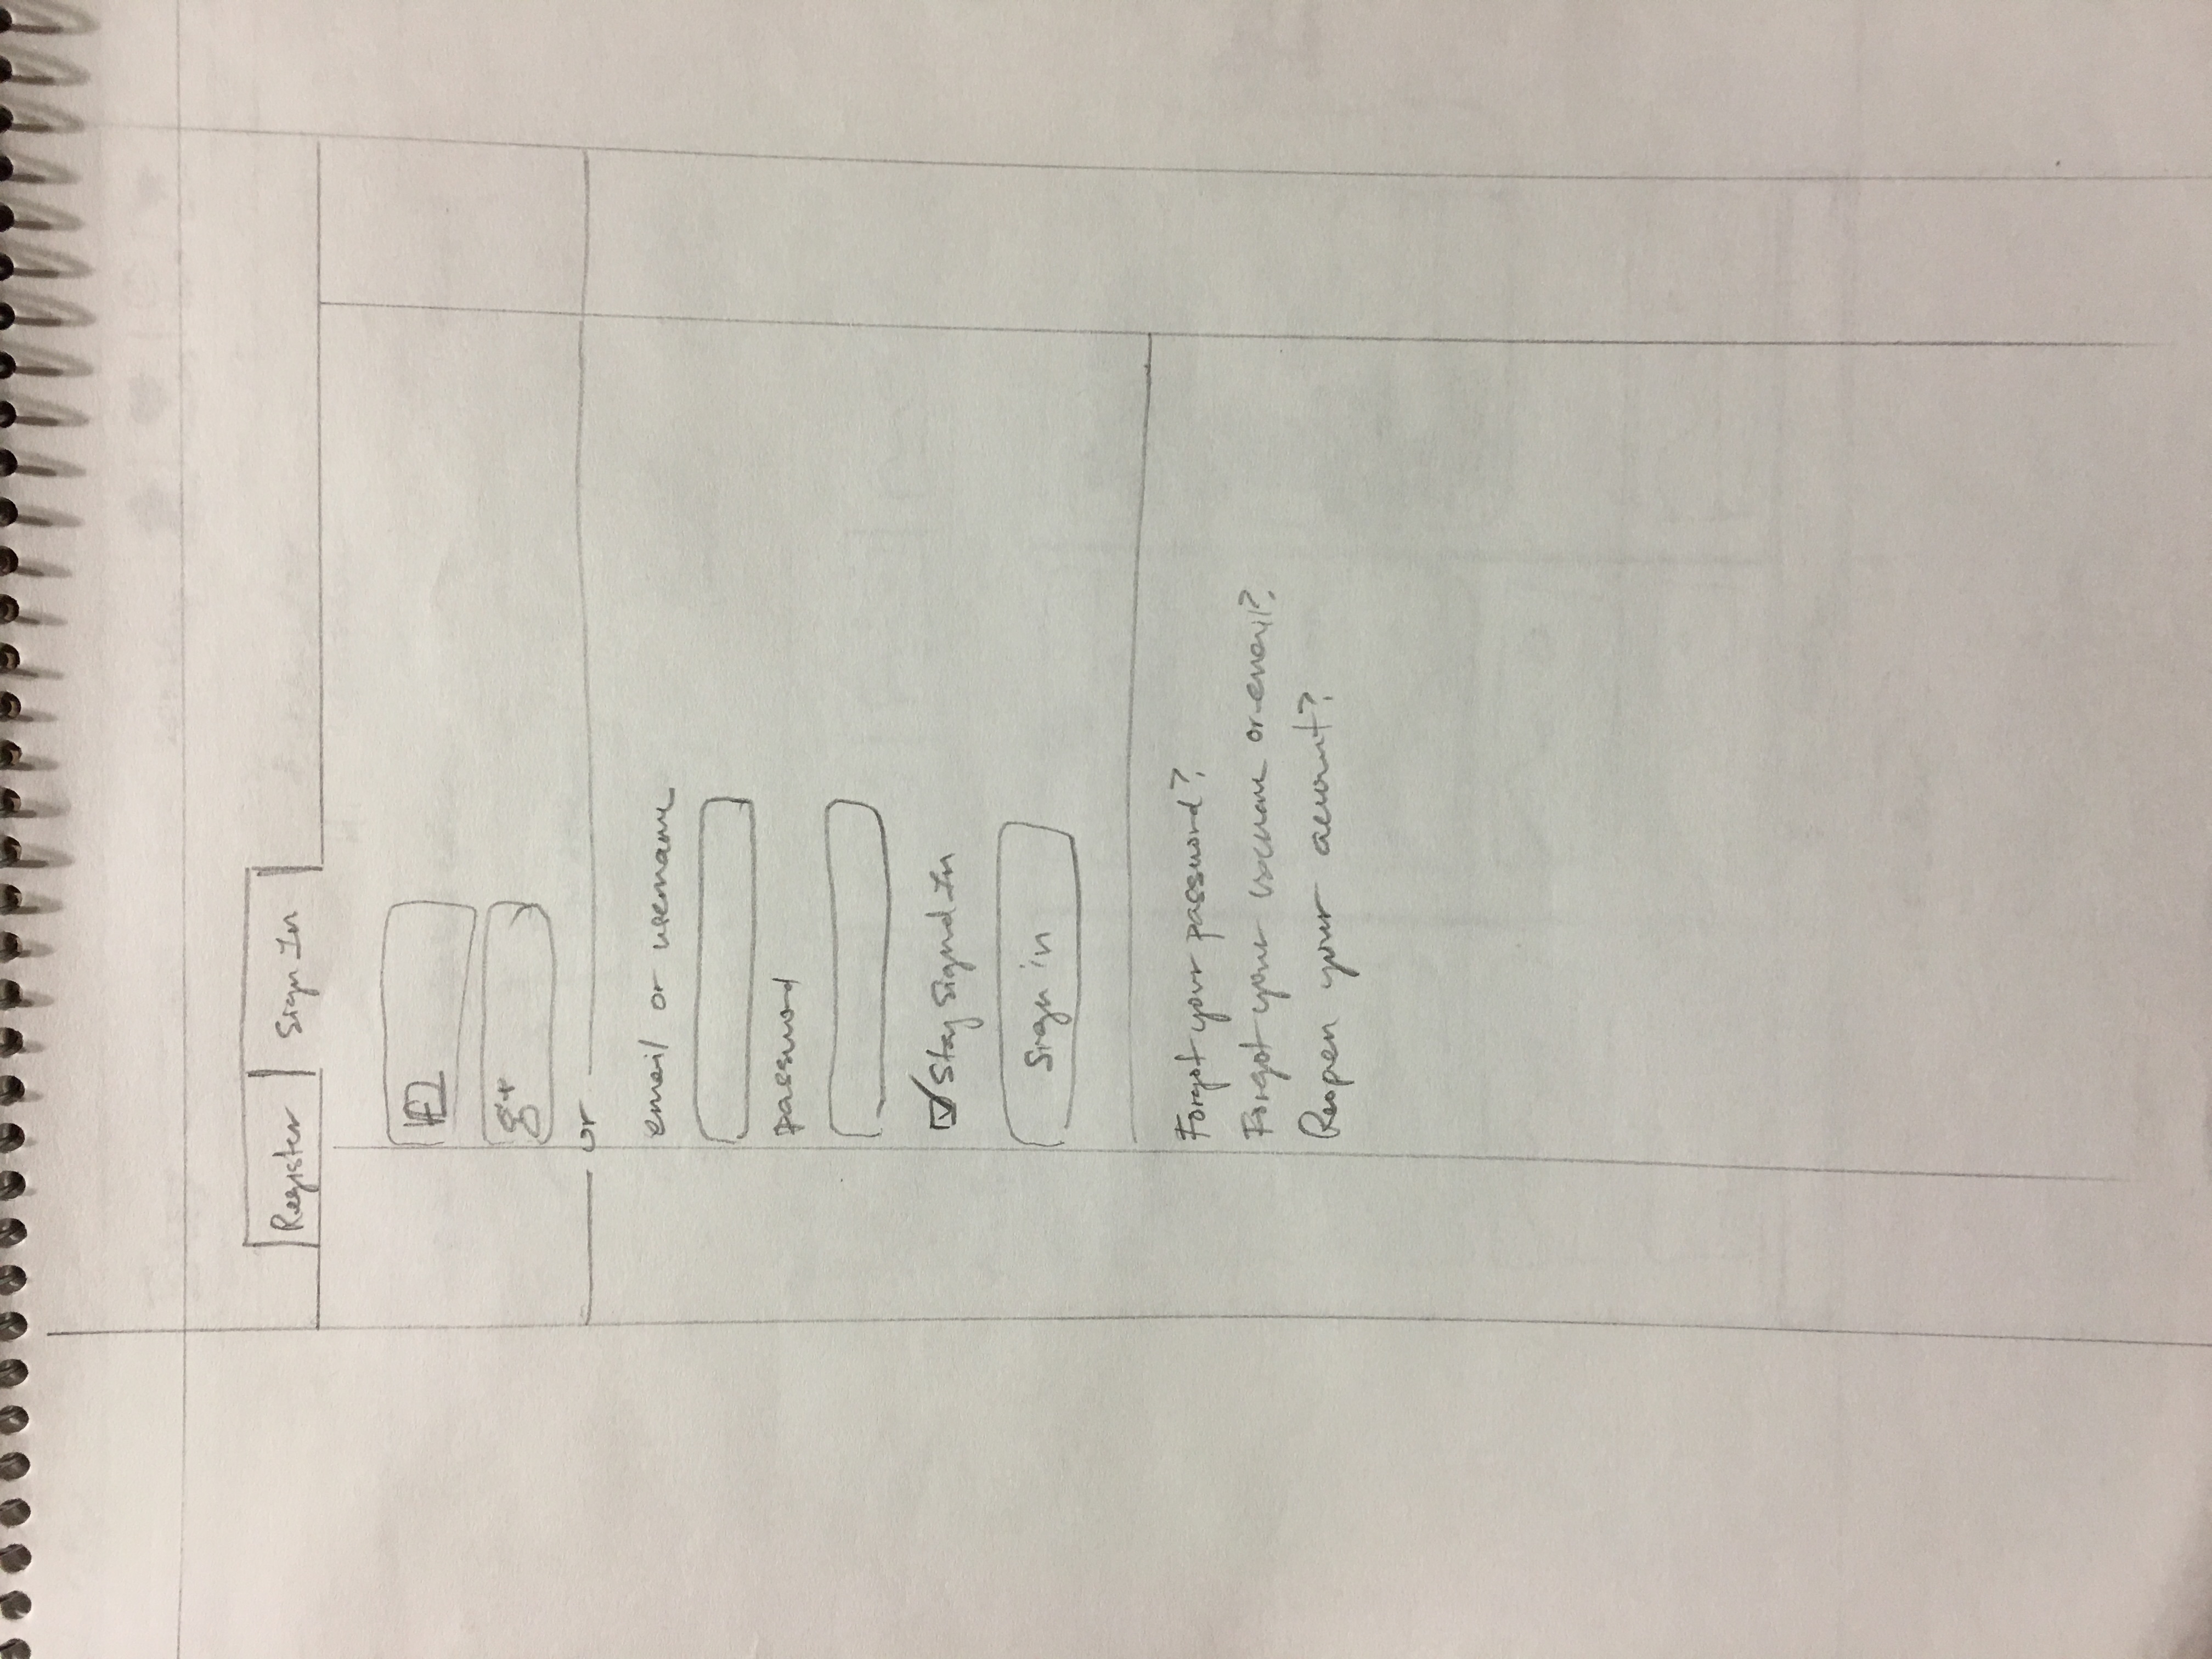 Register Sign In
f
g+
or
email or username
password
Stay Signed In
Sign in
Forgot your password?
Forgot your username or email?
Reopen your account?